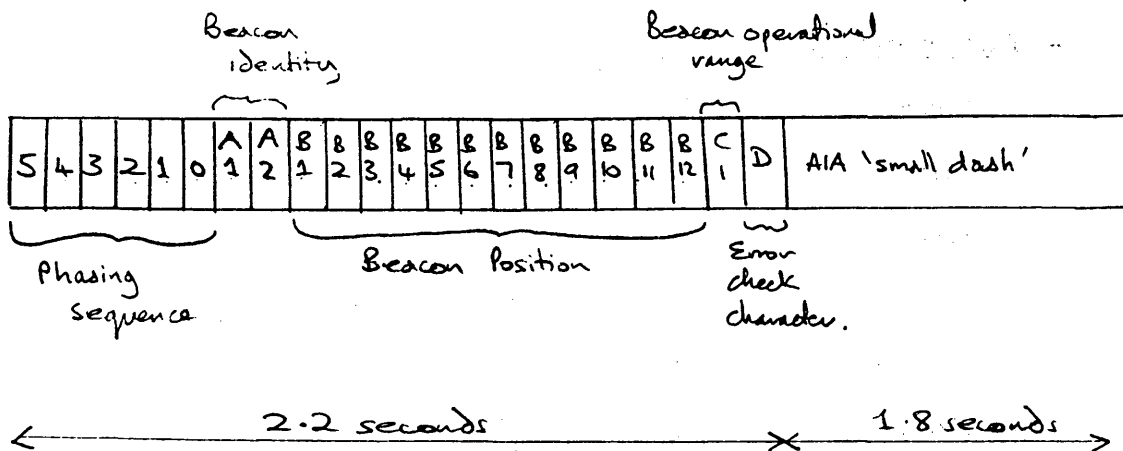 Beacon
identity
Beacon operational
range
5 4 3 2 1 0 A1 A2 B1 B2 B3 B4 B5 B6 B7 B8 B9 B10 B11 B12 C1 D A1A 'small dash'
Phasing
sequence
Beacon Position
Error
check
character.
2.2 seconds
1.8 seconds